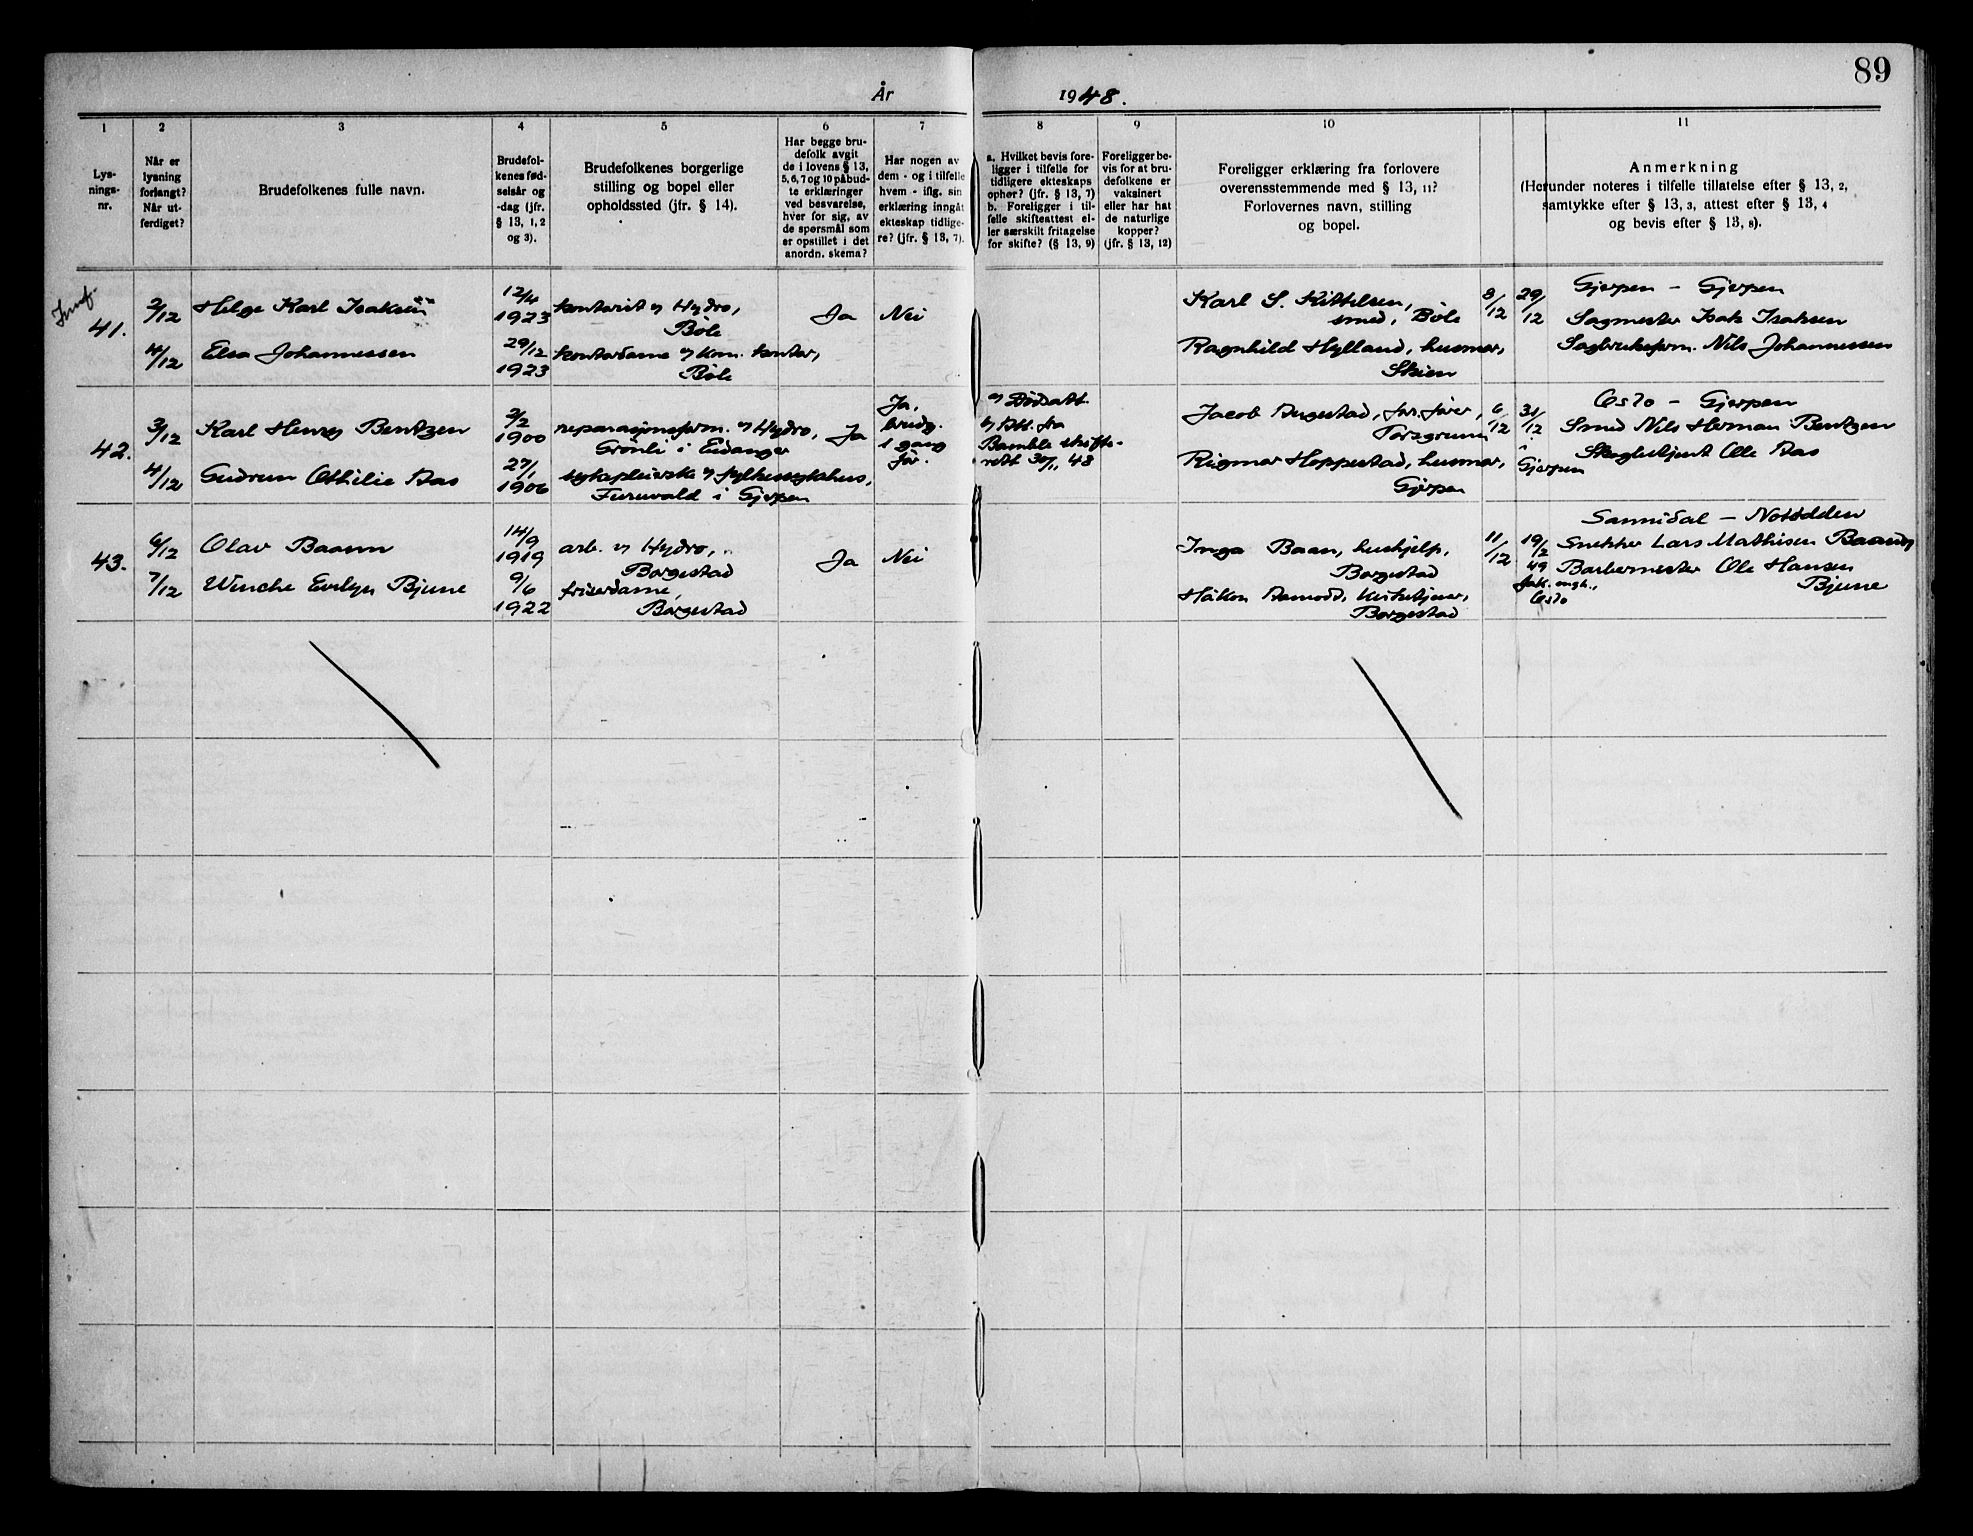 89
År 1948.
1
2
3
4
5
6
7
8
9
10
11
Lys-
nings-
nr.
Når er
lysning
forlangt?
Når ut-
ferdiget?
Brudefolkenes fulle navn.
Brudefol-
kenes fød-
selsår og
-dag (jfr.
§ 13, 1, 2
og 3).
Brudefolkenes borgerlige
stilling og bopel eller
opholdssted (jfr. § 14).
Har begge bru-
defolk avgit
de i lovens § 13,
5, 6, 7 og 10 påbud-
te erklæringer
ved besvarelse,
hver for sig, av
de spørsmål som
er opstillet i det
anordn. skema?
Har nogen av
dem - og i tilfelle
hvem - iflg. sin
erklæring inngåt
ekteskap tidlige-
re? (jfr. § 13, 7).
a. Hvilket bevis fore-
ligger i tilfelle for
tidligere ekteskaps
ophør? (jfr. § 13, 7)
b. Foreligger i til-
felle skifteattest el-
ler særskilt fritagelse
for skifte? (§ 13, 9)
Foreligger be-
vis for at bru-
defolkene er
vaksinert
eller har hat
de naturlige
kopper?
(jfr. § 13, 12)
Foreligger erklæring fra forlovere
overensstemmende med § 13, 11?
Forlovernes navn, stilling
og bopel.
Anmerkning
(Herunder noteres i tilfelle tillatelse efter § 13, 2,
samtykke efter § 13, 3, attest efter § 13, 4
og bevis efter § 13, 8).
41.
2/12
4/12
Helge Karl Isaksen
Elsa Johannessen
12/4
1923
29/12
1923
kontorist v Hydro,
Bøle
kontordame v kom. kontor,
Bøle
Ja
Nei
Karl S. Kittelsen,
smed, Bøle
Ragnhild Hylland, husmor,
Skien
8/12
29/12
Gjerpen - Gjerpen
Sagmester Isak Isaksen
Sagbruksform. Nils Johannessen
42.
3/12
4/12
Karl Henry Bentzen
Gudrun Othilie Aas
2/2
1900
27/1
1906
reparasjonsform. v Hydro,
Grönli i Eidanger
sykepleierske v fylkessykehus,
Furuvald i Gjerpen
Ja
Ja,
brudg.
1 gang
før.
a) Dødsatt.
b) Att. fra
Bamble skifte-
rett 30/11 48
Jacob Augestad, for. fører,
Porsgrunn
Rigmor Hoppestad, husmor,
Gjerpen
6/12
31/12
i
Gjerpen
Oslo - Gjerpen
Smed Nils Herman Bentzen
Skoglektjent Ole Aas
43.
6/12
7/12
Olav Baann
Wenche Evelyn Bjune
14/9
1919
9/6
1922
arb. v Hydro,
Borgestad
friserdame,
Borgestad
Ja
Nei
Inga Baan, hushjelp,
Borgestad
Håkon Aamodt, kirketjener,
Borgestad
11/12
19/2
49
Jak. menigh.,
Oslo
Sannidal - Notodden
Snekker Lars Mathisen Baann
Barbermester Ole Hansen
Bjune